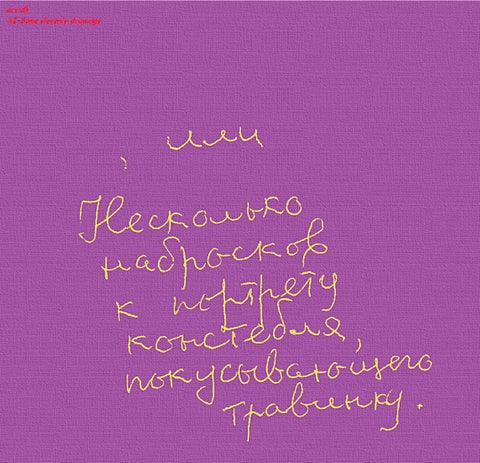 , или
Несколько
набросков
к портрету
констебля,
покусывающего
травинку.